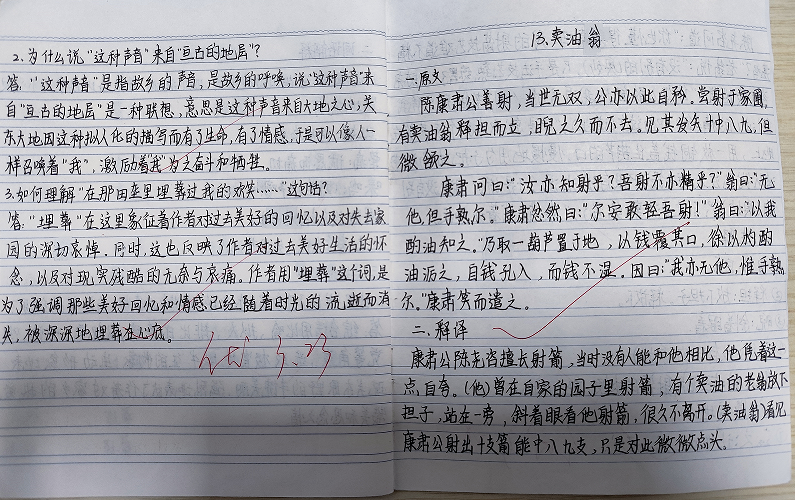 2.为什么说"这种声音"来自"亘古的地层"?
答:"这种声音"是指故乡的声音,是故乡的呼唤,说"这种声音"来
自"亘古的地层"是一种联想,意思是这种声音来自大地之心,关
东大地因这种拟人化的描写而有了生命,有了情感,于是可以像人一
样召唤着"我",激励着"我"为之奋斗和牺牲。
3.如何理解"在那田垄里埋葬过我的欢笑……"这句话?
答:"埋葬"在这里象征着作者对过去美好的回忆以及对失去家
园的深切哀悼。同时,这也反映了作者对过去美好生活的怀
念,以及对现实残酷的无奈与哀痛。作者用"埋葬"这个词,是
为了强调那些美好回忆和情感已经随着时光的流逝而消
失,被深深地埋葬在心底。
优 3.23
13.卖油翁
一.原文
陈康肃公善射,当世无双,公亦以此自矜。尝射于家圃,
有卖油翁释担而立,睨之久而不去。见其发矢十中八九,但
微颔之。
康肃问曰:"汝亦知射乎?吾射不亦精乎?"翁曰:"无
他,但手熟尔。"康肃忿然曰:"尔安敢轻吾射!"翁曰:"以我
酌油知之。"乃取一葫芦置于地,以钱覆其口,徐以杓酌
油沥之,自钱孔入,而钱不湿。因曰:"我亦无他,惟手熟
尔。"康肃笑而遣之。
二.释译
康肃公陈尧咨擅长射箭,当时没有人能和他相比,他凭着这一
点自夸。(他)曾在自家的园子里射箭,有个卖油的老翁放下
担子,站在一旁,斜着眼看他射箭,很久不离开。(卖油翁)看见
康肃公射出十支箭能中八九支,只是对此微微点头。